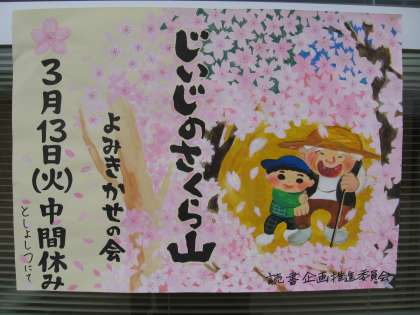 じぃじのさくら山
よみきかせの会
3月13日(火)中間休み
としょしつにて
読書企画推進委員会